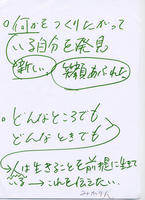 ・何かをつくりたがって
いる自分を発見
新しい 笑顔あふれた
・どんなところでも
どんなときでも
人は生きることを前提に生きて
いる→これを伝えたい。